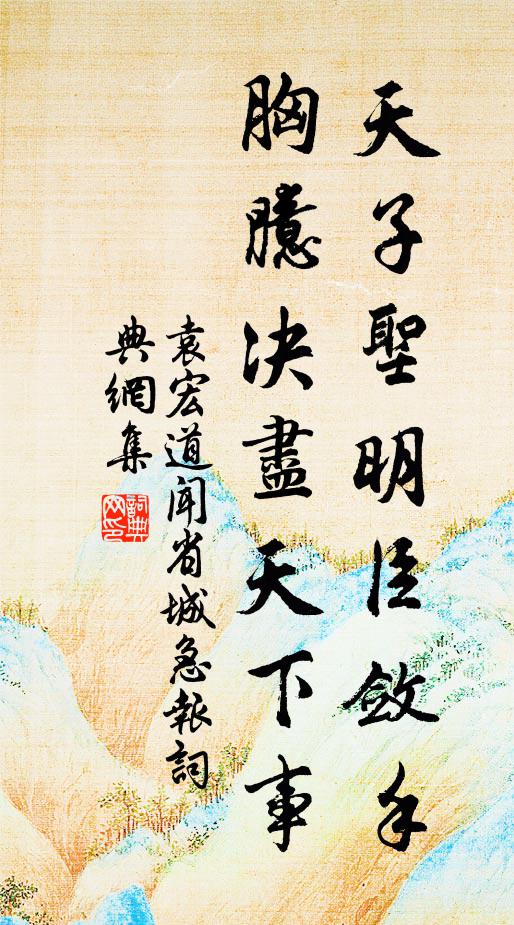 天子聖明臣斂手
胸臆決盡天下事
袁宏道聞省城急報詞
典網集
詞典網印